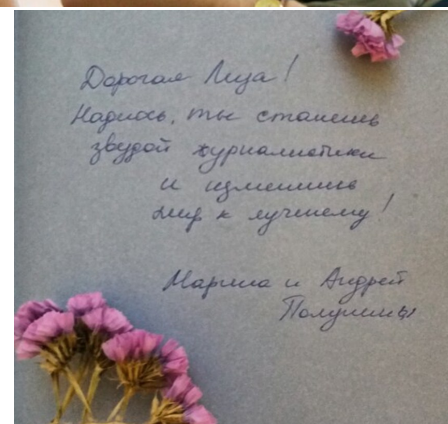 Дорогая Лиза!
Надеюсь, ты станешь
звездой журналистики
и изменишь
мир к лучшему!
Марина и Андрей